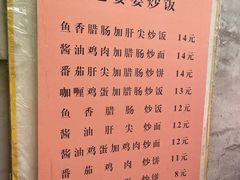 婆婆炒饭
鱼香腊肠加肝尖炒饭 14元
酱油鸡肉加肝尖炒面 14元
番茄腊肠加肝尖炒饼 14元
咖喱鸡蛋加肝尖炒饭 13元
鱼香腊肠炒饭 12元
酱油肝尖炒面 12元
酱油鸡蛋加鸡肉炒面 12元
番茄鸡肉炒饼 11元
炒饼 8元